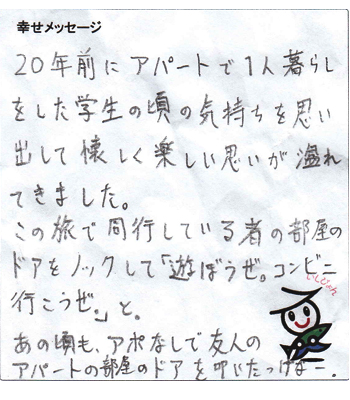 幸せメッセージ
20年前にアパートで1人暮らし
をした学生の頃の気持ちを思い
出して懐しく楽しい思いが溢れ
てきました。
この旅で同行している者の部屋の
ドアをノックして「遊ぼうぜ。コンビニ
行こうぜ。」と。
あの頃も、アポなしで友人の
アパートの部屋のドアを叩いたっけなー。